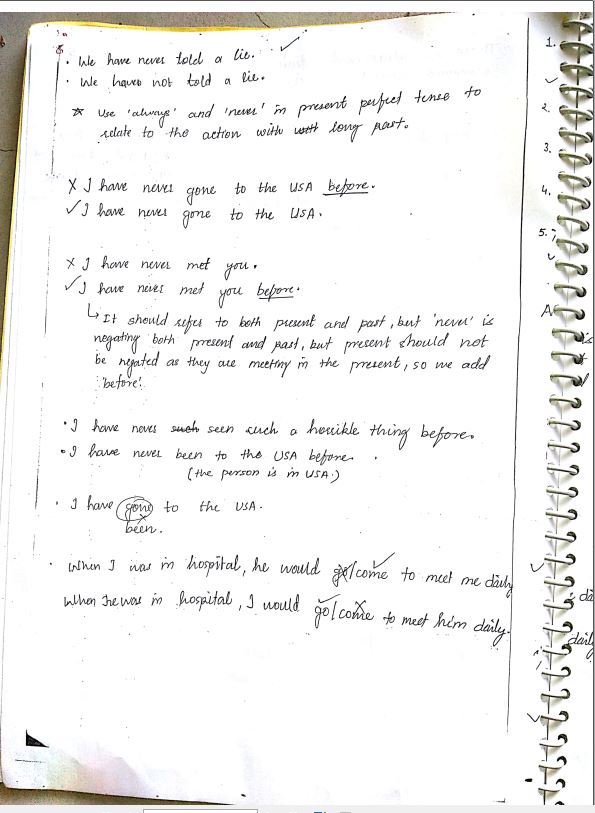 • We have never told a lie. ✓
• We have not told a lie.
* Use 'always' and 'never' in present perfect tense to
relate to the action with with long past.
X I have never gone to the USA before.
✓ I have never gone to the USA.
X I have never met you.
✓ I have never met you before.
↳ It should refer to both present and past, but 'never' is
negating both present and past, but present should not
be negated as they are meeting in the present, so we add
'before'.
• I have never such seen such a horrible thing before.
• I have never been to the USA before.
(the person is in USA.)
• I have gone to the USA.
been.
• When I was in hospital, he would go/come to meet me daily
When he was in hospital, I would go/come to meet him daily.
1.
2.
3.
4.
5.
A
daily